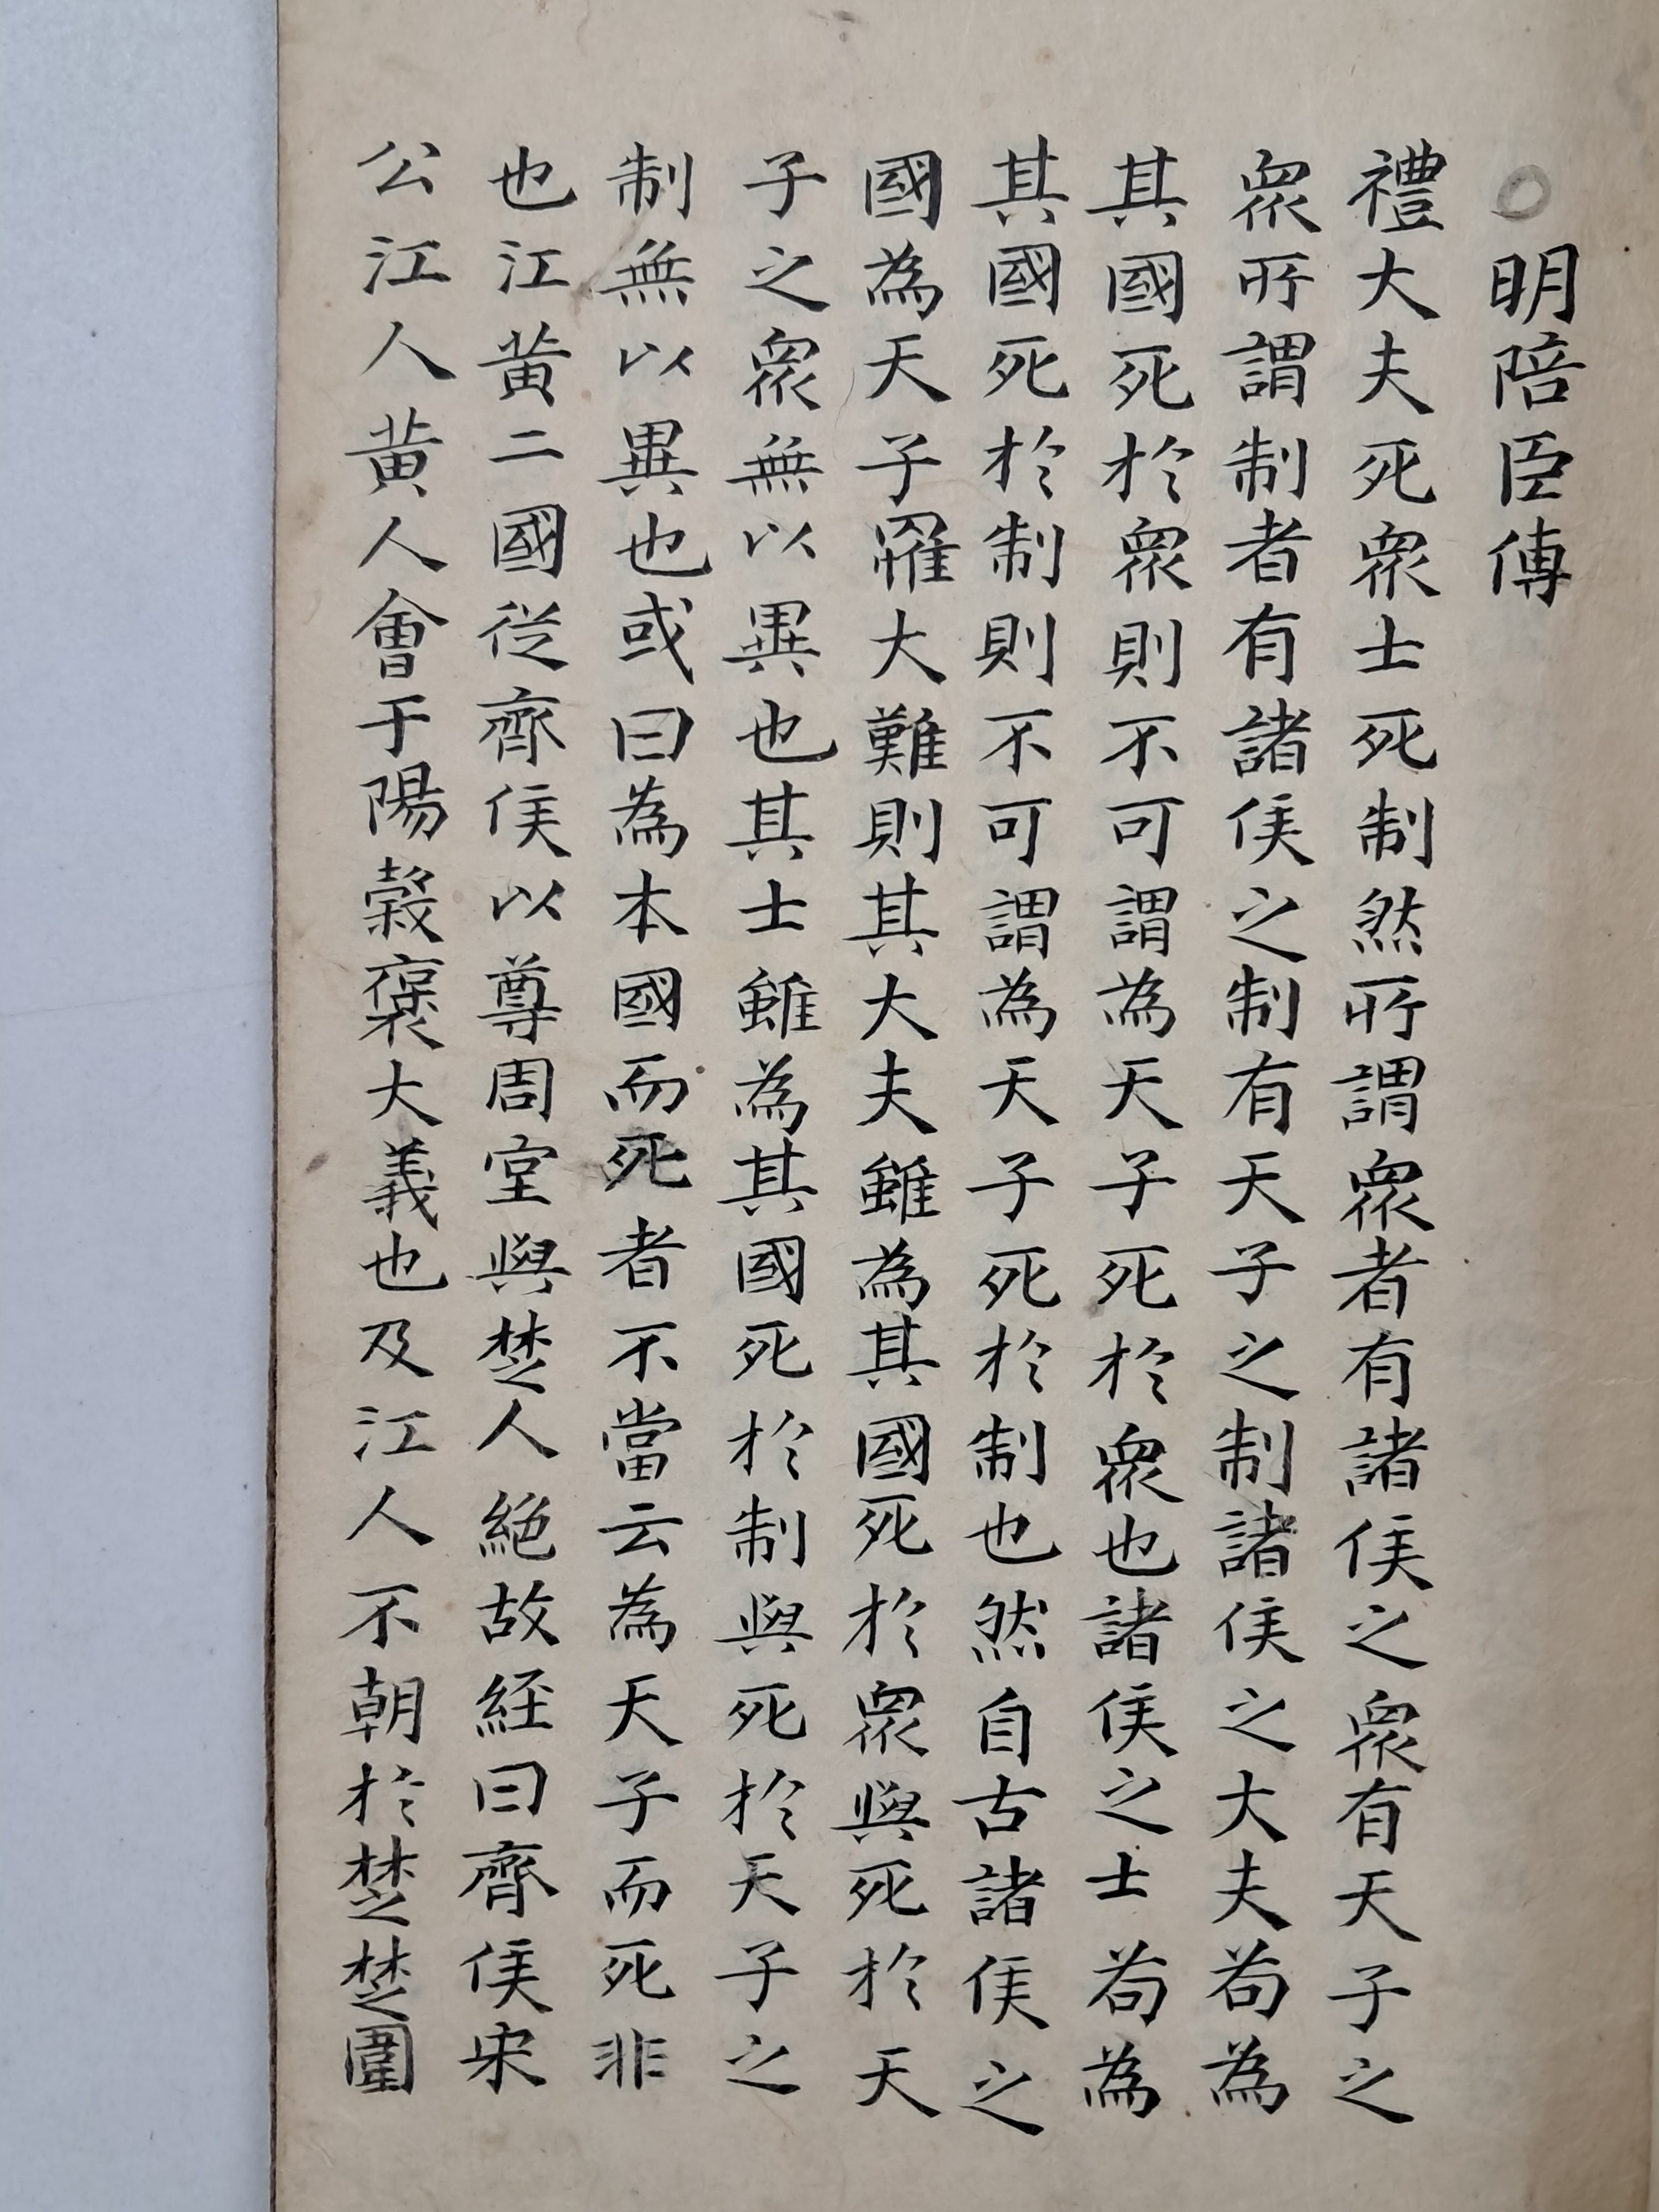 ○明陪臣傳
禮大夫死衆士死制然所謂衆者有諸侯之衆有天子之
衆所謂制者有諸侯之制有天子之制諸侯之大夫苟為
其國死於衆則不可謂為天子死於衆也諸侯之士苟為
其國死於制則不可謂為天子死於制也然自古諸侯之
國為天子罹大難則其大夫雖為其國死於衆與死於天
子之衆無以異也其士雖為其國死於制與死於天子之
制無以異也或曰為本國而死者不當云為天子而死非
也江黄二國從齊侯以尊周室與楚人絕故経曰齊侯宋
公江人黄人會于陽穀褒大義也及江人不朝於楚楚圍